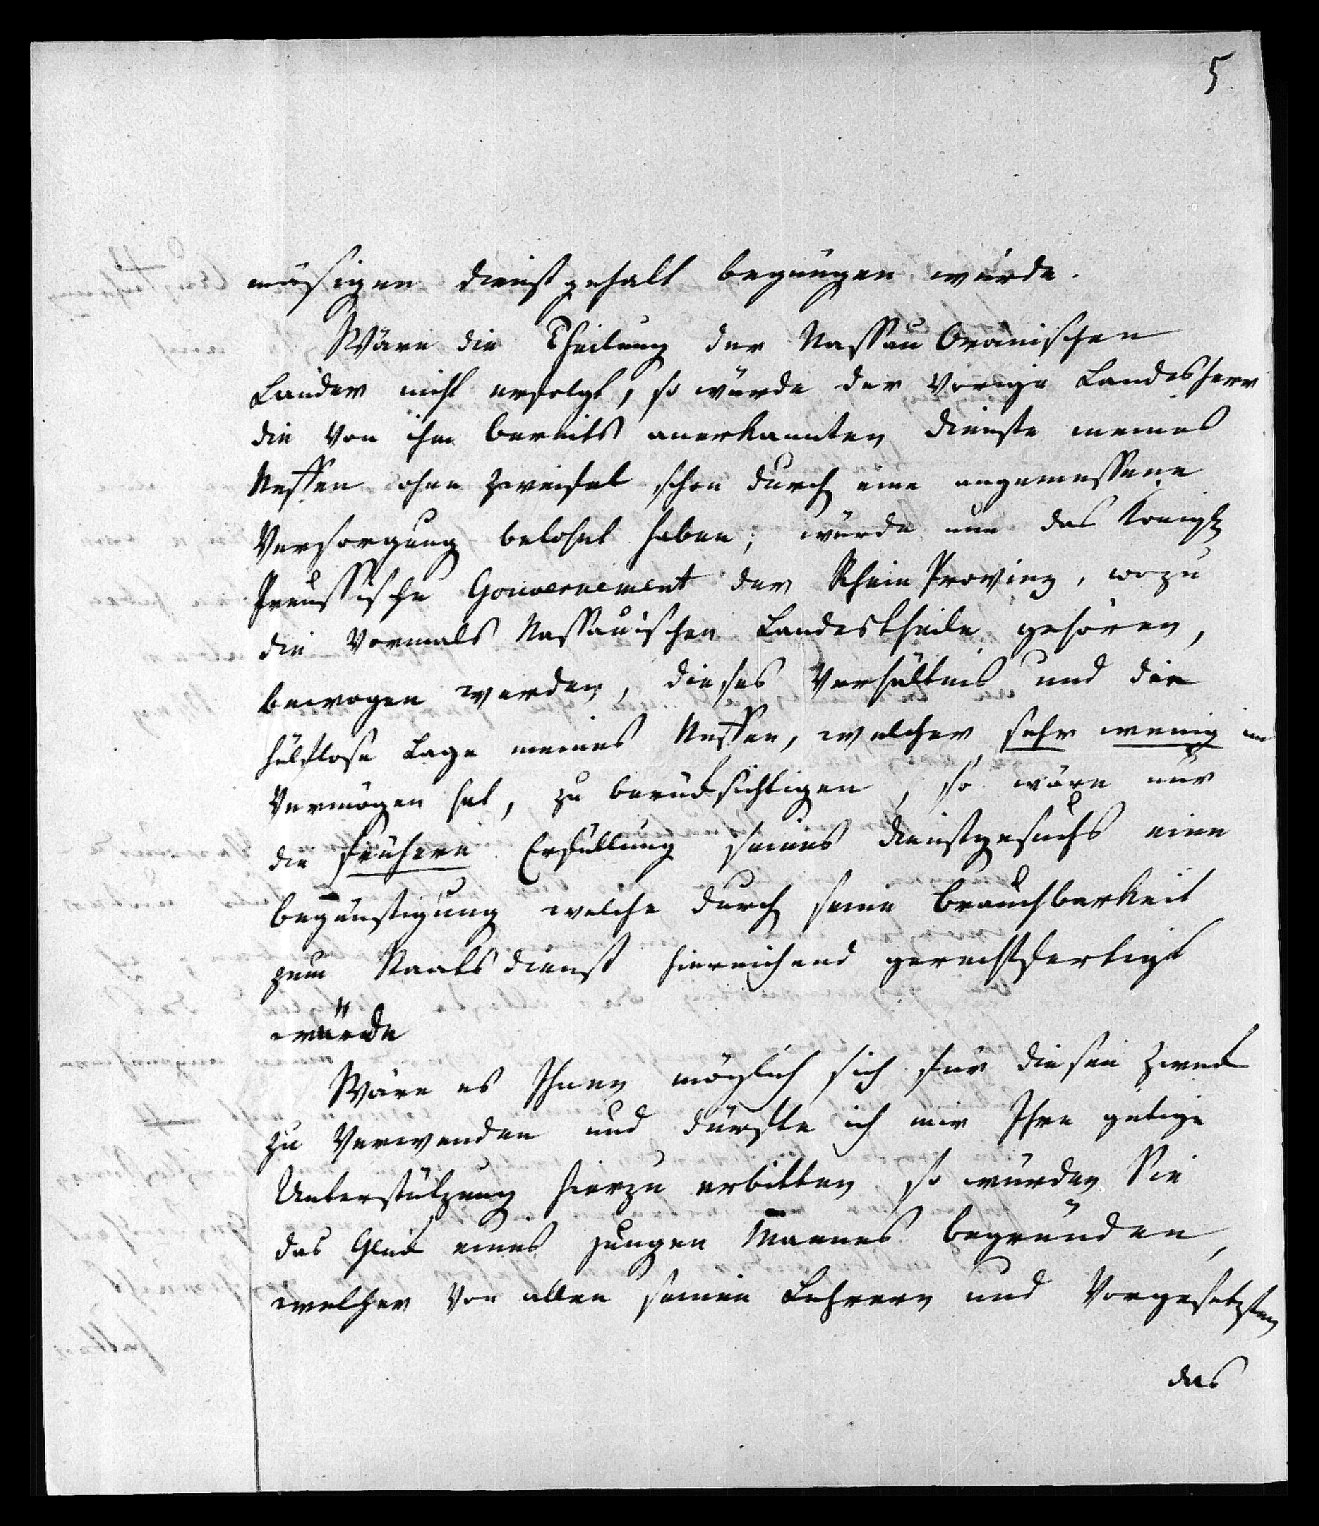 5.
mäsigen Dienstgehalt begnügen würde.
Wäre die Theilung der Nassau Oranischen
Länder nicht erfolgt, so würde der vorige Landesherr
die von ihm bereits anerkannten Dienste meines
Neffen ohne Zweifel schon durch eine angemessene
Versorgung belohnt haben; würde nun das Königl
Preussische Gouvernement der Rhein Provinz, wozu
die vormals Nassauischen Landestheile gehören,
bewogen werden, dieses Verhältnis und die
hülflose Lage meines Neffen, welcher sehr wenig
Vermögen hat, zu berücksichtigen, so wäre nur
die frühere Erfüllung seines Dienstgesuchs eine
begünstigung welche durch seine Brauchbarkeit
zum Staatsdienst hinreichend gerechtfertigt
würde
Wäre es Ihnen möglich sich für diesen Zweck
zu verwenden und dürfte ich mir Ihre gütige
Unterstützung hierzu erbitten so würden Sie
das Glück eines jungen Mannes begründen,
welcher von allen seinen Lehrern und Vorgesetzten
das